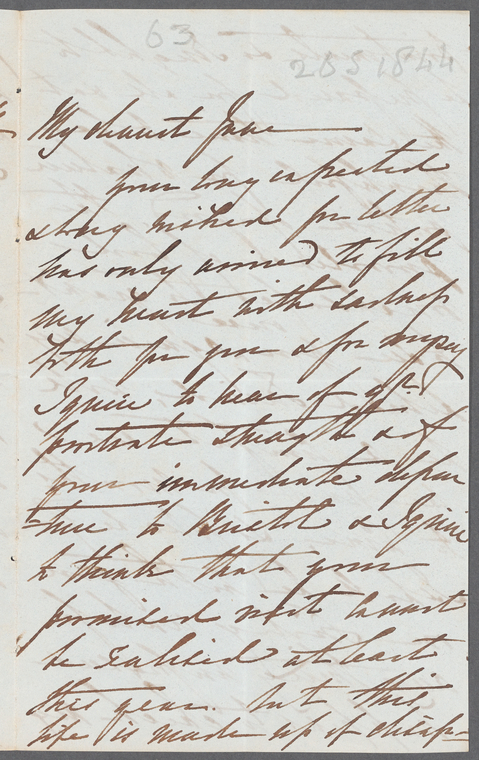 63
26 S 1844
My dearest Jane
your long expected
& long wished for letter
has only arrived to fill
my heart with sadness
both for you & for myself
I grieve to hear of yr
prostrate strength & of
your immediate depar
ture to Bristol & I grieve
to think that your
promised visit cannot
be realised at least
this year. but this
life is made up of disap-